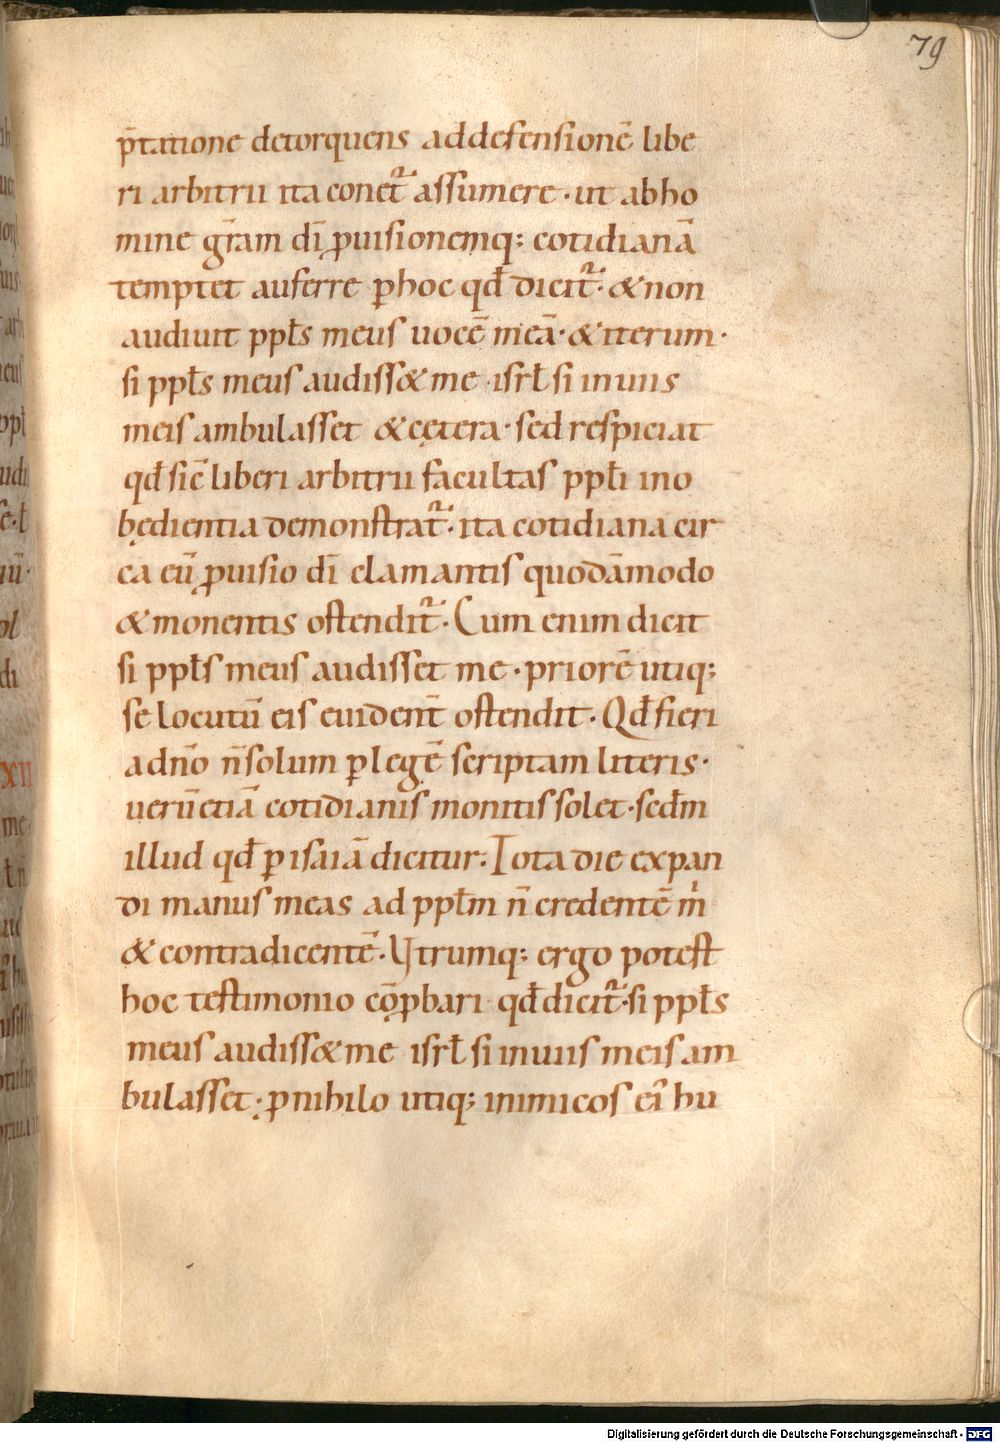 79
p̄tatione detorquens addefensionē libe
ri arbitrii ita conet᷑ assumere · ut abho
mine gr̄am dī ꝓuisionemq; cotidianā
temptet auferre ꝑhoc qđ dicit᷑ · & non
audiuit pplꝭ meus uocē meā · & iterum ·
si ppłs meus audiss& me · isrł si inuiis
meis ambulasset & cętera · sed respiciat
qđ sic̄ liberi arbitrii facultas ppłi ino
będientia demonstrat᷑ · ita cotidiana cir
ca eū ꝓuisio dī clamantis quodāmodo
& monentis ostendit᷑ · Cum enim dicit
si ppłs meus audisset me · priorē utiq;
se locutū eis euident̄ ostendit · Qđ fieri
adn̄o n̄ solum ꝑ legē scriptam literis ·
uerū etiā cotidianis monitis solet · scđm
illud qđ ꝑ isaiā dicitur · Iota die expan
di manus meas ad ppłm n̄ credentē m̍
& contradicentē · Vtrumq; ergo potest
hoc testimonio cōꝓbari qđ dicit᷑ · si ppłs
meus audiss& me isrł si inuiis meis am
bulasset · ꝓ nihilo utiq; inimicos eī hu
Digitalisierung gefördert durch die Deutsche Forschungsgemeinschaft · DFG